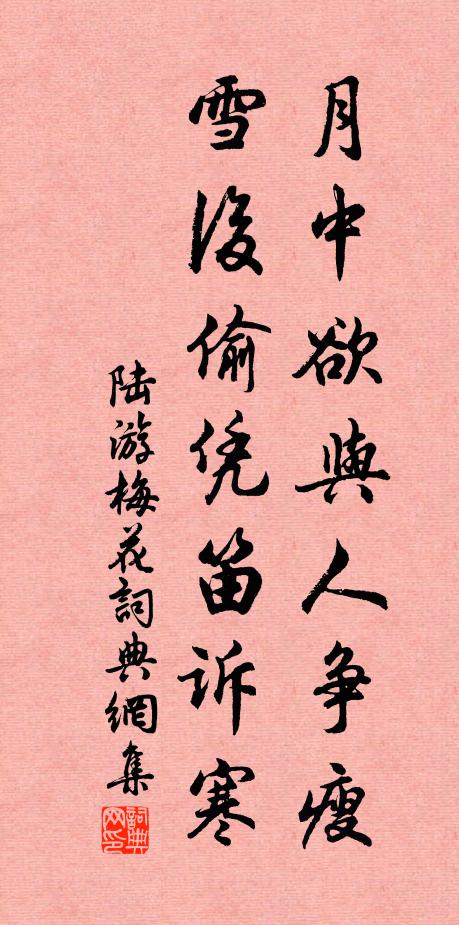 月中欲與人争瘦
雪後偷凭笛訴寒
陸游梅花詞典網集
詞典网印